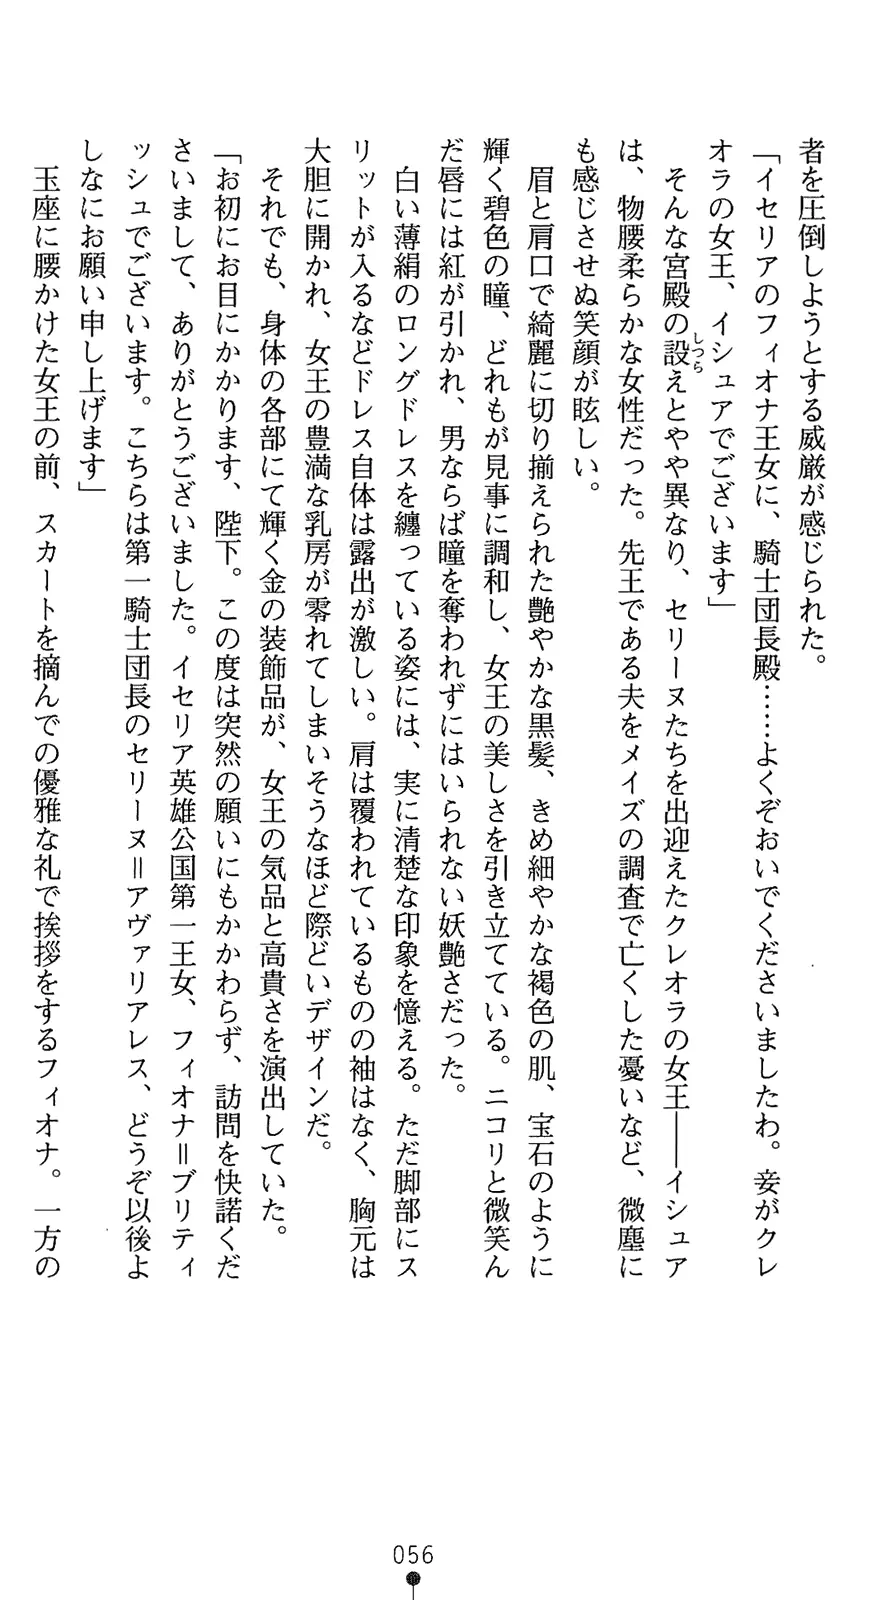 者を圧倒しようとする威厳が感じられた。
「イセリアのフィオナ王女に、騎士団長殿……よくぞおいでくださいましたわ。妾がクレ
オラの女王、イシュアでございます」
そんな宮殿の設えとやや異なり、セリーヌたちを出迎えたクレオラの女王――イシュア
しつら
は、物腰柔らかな女性だった。先王である夫をメイズの調査で亡くした憂いなど、微塵に
も感じさせぬ笑顔が眩しい。
眉と肩口で綺麗に切り揃えられた艶やかな黒髪、きめ細やかな褐色の肌、宝石のように
輝く碧色の瞳、どれもが見事に調和し、女王の美しさを引き立てている。ニコリと微笑ん
だ唇には紅が引かれ、男ならば瞳を奪われずにはいられない妖艶さだった。
白い薄絹のロングドレスを纏っている姿には、実に清楚な印象を憶える。ただ脚部にス
リットが入るなどドレス自体は露出が激しい。肩は覆われているものの袖はなく、胸元は
大胆に開かれ、女王の豊満な乳房が零れてしまいそうなほど際どいデザインだ。
それでも、身体の各部にて輝く金の装飾品が、女王の気品と高貴さを演出していた。
「お初にお目にかかります、陛下。この度は突然の願いにもかかわらず、訪問を快諾くだ
さいまして、ありがとうございました。イセリア英雄公国第一王女、フィオナ＝ブリティ
ッシュでございます。こちらは第一騎士団長のセリーヌ＝アヴァリアレス、どうぞ以後よ
しなにお願い申し上げます」
玉座に腰かけた女王の前、スカートを摘んでの優雅な礼で挨拶をするフィオナ。一方の
056